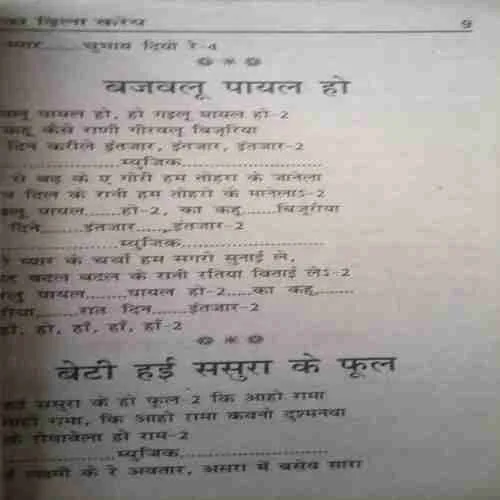 का खिला करेय 9
प्यार......चुभाव दियो रे-4
बजवलू पायल हो
पायल हो, हो गइलू पायल हो-2
कहू कैसे राणी गोरवलू बिजुरिया
दिन करीले इंतजार, इंतजार, इंतजार-2
म्युजिक
से बढ़ के ए गोरी हम तोहरा के जानेला
दिल के रानी हम तोहरो के मानेलाऽ-2
पायल.......हो-2, का कहू......बिजुरीया
दिने......इंतजार.....इंतजार-2
म्युजिक
प्यार के चर्चा हम सगरो सुनाई ले,
बदल बदल के रानी रतिया बिताई लेऽ-2
पायल........पायल हो-2.....का कहू.......
रात दिन......इंतजार-2
हो, हो, हाँ, हाँ, हाँ-2
बेटी हई ससुरा के फूल
हई ससुरा के हो फूल-2 कि आहो रामा
आहो रामा, कि आहो रामा कवनो दुश्मनवा
के रोवावेला हो राम-2
म्युजिक
लक्ष्मी के रे अवतार, असरा में बसेब सारा